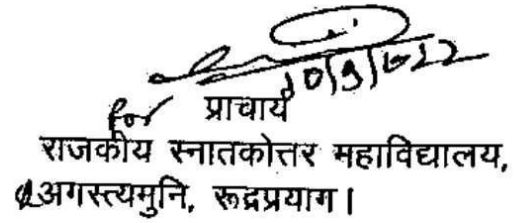 for प्राचार्य
राजकीय स्नातकोत्तर महाविद्यालय,
अगस्त्यमुनि, रूद्रप्रयाग।